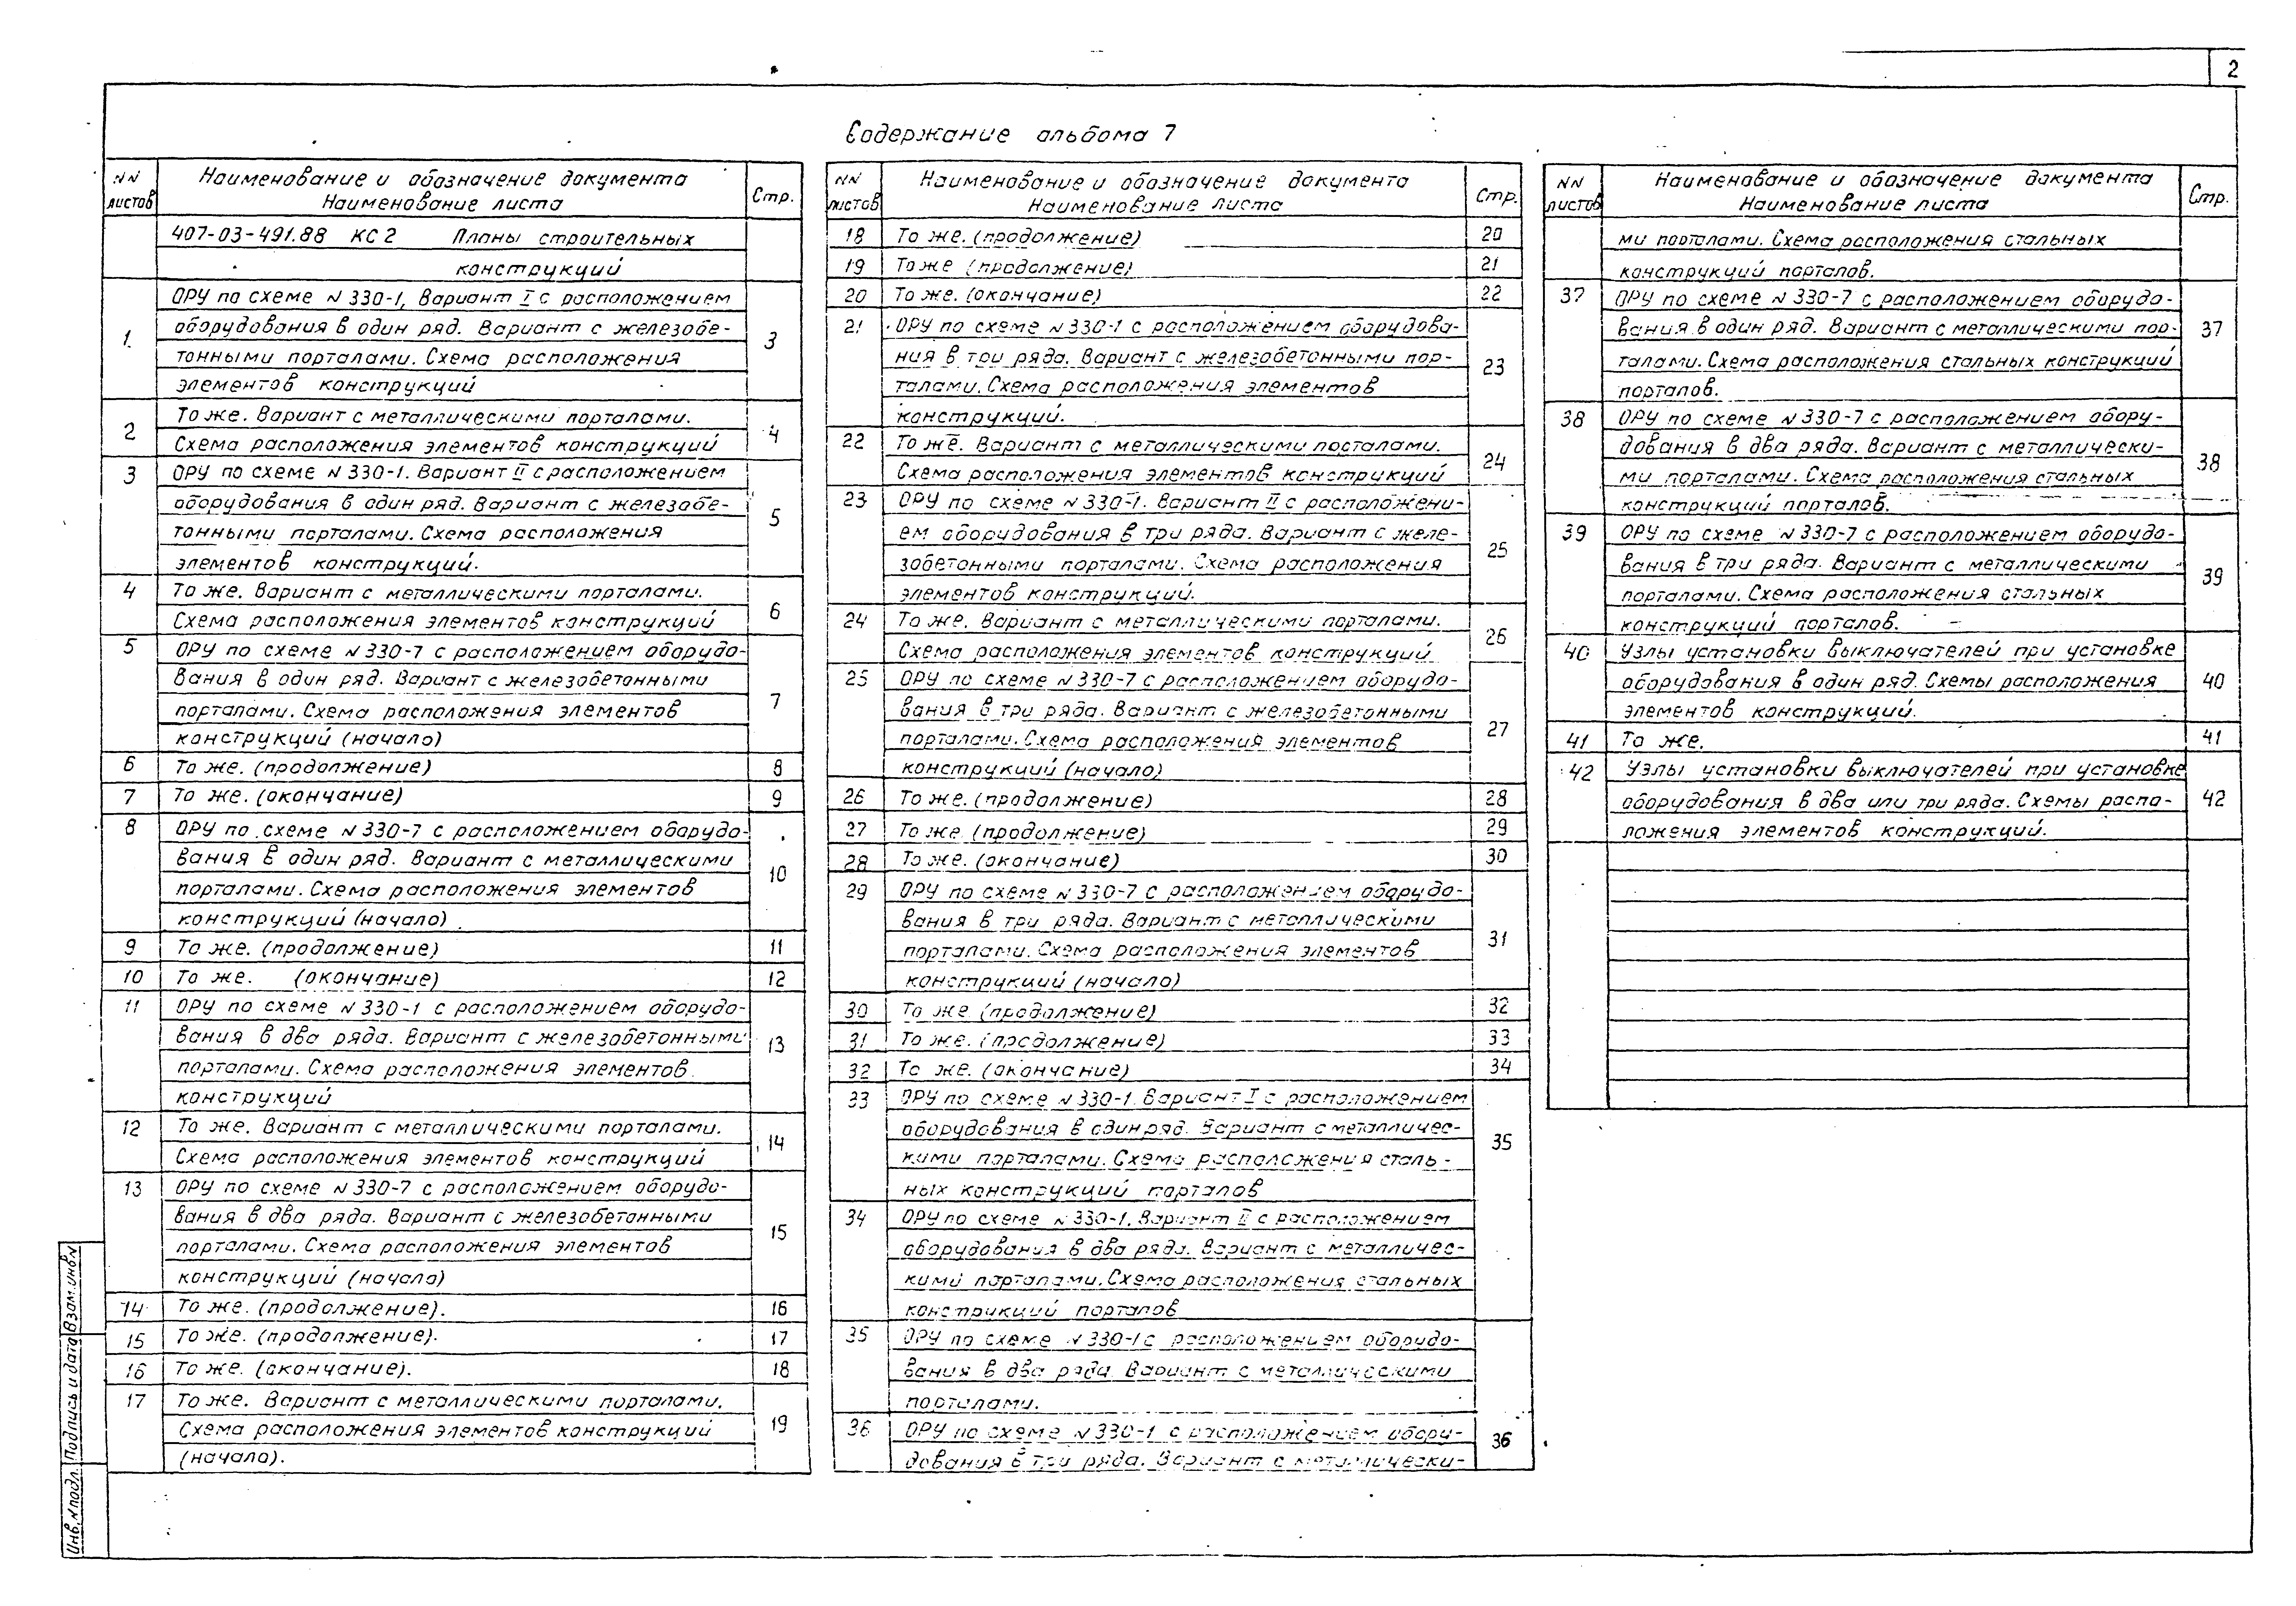 2
Содержание альбома 7
NN листов
Наименование и обозначение документа
Наименование листа
Стр.
407-03-491.88 КС2 Планы строительных
конструкций
1. ОРУ по схеме N 330-1, Вариант I с расположением
оборудования в один ряд. Вариант с железобе-
тонными порталами. Схема расположения
элементов конструкций
3
2 То же. Вариант с металлическими порталами.
Схема расположения элементов конструкций
4
3 ОРУ по схеме N 330-1. Вариант II с расположением
оборудования в один ряд. Вариант с железобе-
тонными порталами. Схема расположения
элементов конструкций.
5
4 То же. Вариант с металлическими порталами.
Схема расположения элементов конструкций
6
5 ОРУ по схеме N 330-7 с расположением оборудо-
вания в один ряд. Вариант с железобетонными
порталами. Схема расположения элементов
конструкций (начало)
7
6 То же. (продолжение) 8
7 То же. (окончание) 9
8 ОРУ по схеме N 330-7 с расположением оборудо-
вания в один ряд. Вариант с металлическими
порталами. Схема расположения элементов
конструкций (начало).
10
9 То же. (продолжение) 11
10 То же. (окончание) 12
11 ОРУ по схеме N 330-1 с расположением оборудо-
вания в два ряда. Вариант с железобетонными
порталами. Схема расположения элементов
конструкций
13
12 То же. Вариант с металлическими порталами.
Схема расположения элементов конструкций
14
13 ОРУ по схеме N 330-7 с расположением оборудо-
вания в два ряда. Вариант с железобетонными
порталами. Схема расположения элементов
конструкций (начало)
15
14 То же. (продолжение). 16
15 То же. (продолжение). 17
16 То же. (окончание). 18
17 То же. Вариант с металлическими порталами.
Схема расположения элементов конструкций
(начало).
19
NN листов
Наименование и обозначение документа
Наименование листа
Стр.
18 То же. (продолжение) 20
19 То же (продолжение) 21
20 То же. (окончание) 22
21 ОРУ по схеме N 330-1 с расположением оборудова-
ния в три ряда. Вариант с железобетонными пор-
талами. Схема расположения элементов
конструкций.
23
22 То же. Вариант с металлическими порталами.
Схема расположения элементов конструкций
24
23 ОРУ по схеме N 330-1. Вариант II с расположени-
ем оборудования в три ряда. Вариант с желе-
зобетонными порталами. Схема расположения
элементов конструкций.
25
24 То же. Вариант с металлическими порталами.
Схема расположения элементов конструкций
26
25 ОРУ по схеме N 330-7 с расположением оборудо-
вания в три ряда. Вариант с железобетонными
порталами. Схема расположения элементов
конструкций (начало)
27
26 То же. (продолжение) 28
27 То же. (продолжение) 29
28 То же. (окончание) 30
29 ОРУ по схеме N 330-7 с расположением оборудо-
вания в три ряда. Вариант с металлическими
порталами. Схема расположения элементов
конструкций (начало)
31
30 То же (продолжение) 32
31 То же. (продолжение) 33
32 То же. (окончание) 34
33 ОРУ по схеме N 330-1. Вариант I с расположением
оборудования в один ряд. Вариант с металличес-
кими порталами. Схема расположения сталь-
ных конструкций порталов
35
34 ОРУ по схеме N 330-1. Вариант II с расположением
оборудования в два ряда. Вариант с металличес-
кими порталами. Схема расположения стальных
конструкций порталов
35 ОРУ по схеме N 330-1 с расположением оборудо-
вания в два ряда. Вариант с металлическими
порталами.
36 ОРУ по схеме N 330-1 с расположением обору-
дования в три ряда. Вариант с металлически-
36
NN листов
Наименование и обозначение документа
Наименование листа
Стр.
ми порталами. Схема расположения стальных
конструкций порталов.
37 ОРУ по схеме N 330-7 с расположением оборудо-
вания в один ряд. Вариант с металлическими пор-
талами. Схема расположения стальных конструкций
порталов.
37
38 ОРУ по схеме N 330-7 с расположением обору-
дования в два ряда. Вариант с металлически-
ми порталами. Схема расположения стальных
конструкций порталов.
38
39 ОРУ по схеме N 330-7 с расположением оборудо-
вания в три ряда. Вариант с металлическими
порталами. Схема расположения стальных
конструкций порталов.
39
40 Узлы установки выключателей при установке
оборудования в один ряд. Схемы расположения
элементов конструкций.
40
41 То же. 41
42 Узлы установки выключателей при установке
оборудования в два или три ряда. Схемы распо-
ложения элементов конструкций.
42
Инв.N подл. Подпись и дата Взам.инв.N